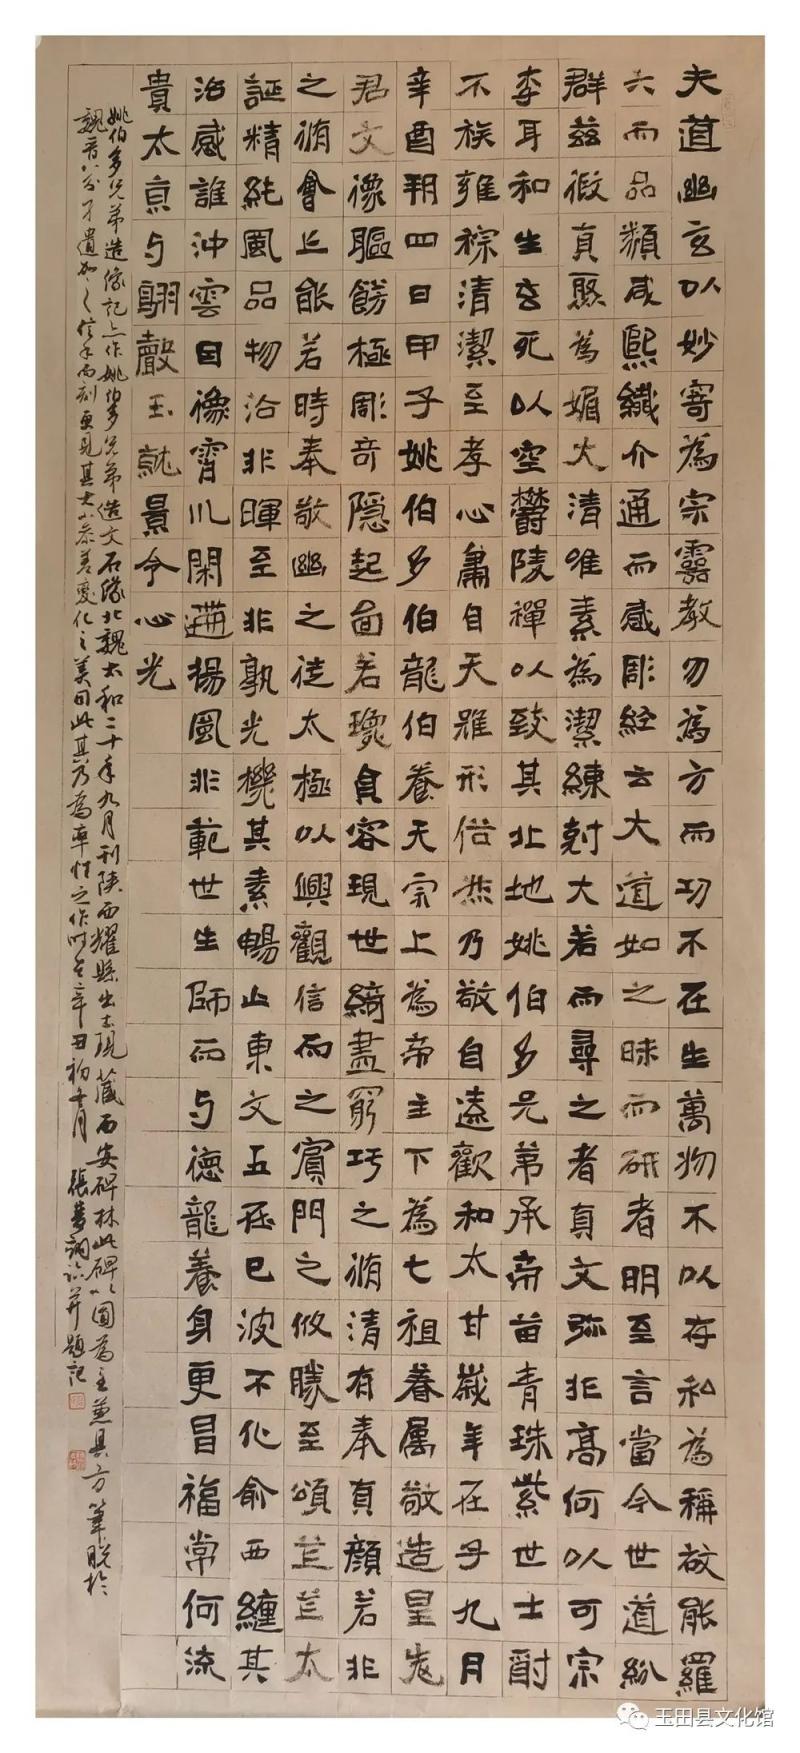 夫道幽玄以妙寄為宗靈教勿為方而功不在生萬物不以存私為稱故能羅
六而品類咸熙纖介通而感彫經云大道如之昧而研者明至言當今世道紛
群茲微真聚為媚大清唯素為潔練尅大若而尋之者真文弥非高何以可宗
李耳和生玄死以空欝陵禪以致其北地姚伯多兄弟承帝苗青珠紫世士酎
不族雍綜清潔至孝心肅自天雖形俗然乃敬自遠歡和太甘歲年在子九月
辛酉朔四日甲子姚伯多伯龍伯養天宗上為帝主下為七祖眷属敬造皇先
君文像軀餝極彫奇隱起面若瓊貞容現世綺盡窮巧之脩清有奉真顏若非
之脩會正能若時奉敬幽之徒太極以興觀信而之賓門之攸勝至頌芒芒太
誕精純風品物沿非暉至非孰光機其素暢山東文五丞已波不化俞西纏其
治感誰沖雲自像霄川閑遘揚風非範世生師而与德龍養身更昌福常何流
貴太京与翾聲玉就景令心光
姚伯多兄弟造像記亦作姚伯多兄弟造文石像北魏太和二十年九月刊陝西耀縣出土現藏西安碑林此碑以圓為主兼具方筆脫於
魏晋八分之遺加之信手而刻更見其大小參差變化之美因此其乃為率性之作時在辛丑初七月 張夢詞臨并題記
玉田县文化馆